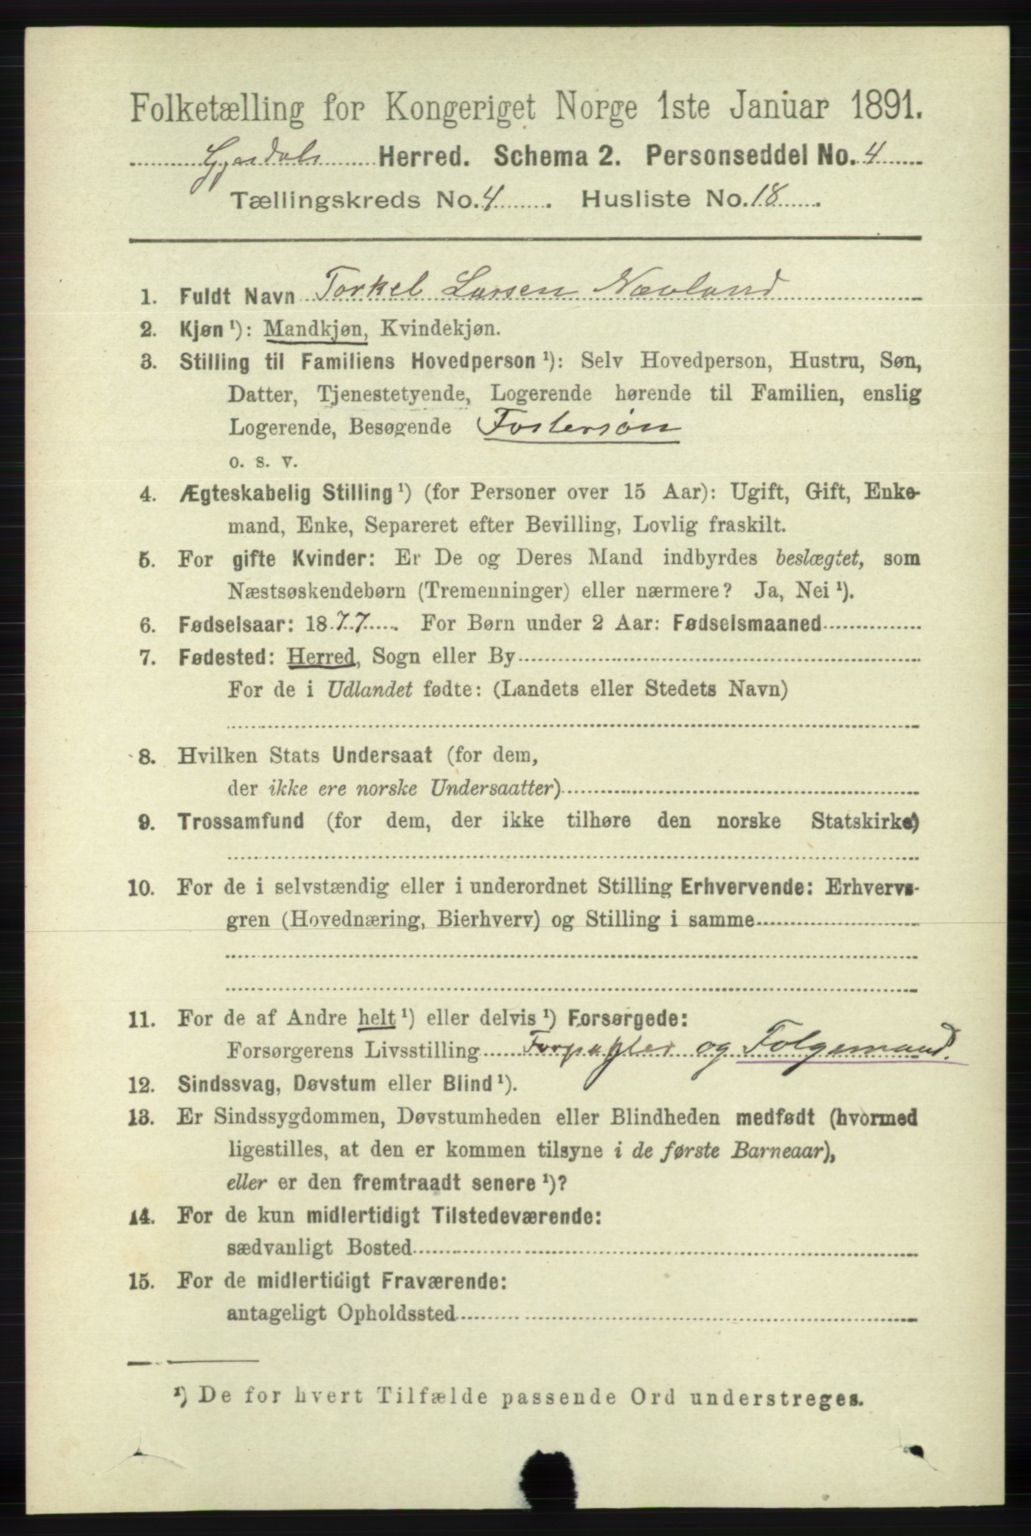 Folketælling for Kongeriget Norge 1ste Januar 1891.
Gjesdals Herred. Schema 2. Personseddel No. 4
Tællingskreds No. 4. Husliste No. 18.
1. Fuldt Navn Torkel Larsen Nævland
2. Kjøn ¹): Mandkjøn, Kvindekjøn.
3. Stilling til Familiens Hovedperson ¹): Selv Hovedperson, Hustru, Søn,
Datter, Tjenestetyende, Logerende hørende til Familien, enslig
Logerende, Besøgende Fostersøn
o. s. v.
4. Ægteskabelig Stilling ¹) (for Personer over 15 Aar): Ugift, Gift, Enke-
mand, Enke, Separeret efter Bevilling, Lovlig fraskilt.
5. For gifte Kvinder: Er De og Deres Mand indbyrdes beslægtet, som
Næstsøskendebørn (Tremenninger) eller nærmere? Ja, Nei ¹).
6. Fødselsaar: 1877. For Børn under 2 Aar: Fødselsmaaned
7. Fødested: Herred, Sogn eller By
For de i Udlandet fødte: (Landets eller Stedets Navn)
8. Hvilken Stats Undersaat (for dem,
der ikke ere norske Undersaatter)
9. Trossamfund (for dem, der ikke tilhøre den norske Statskirke)
10. For de i selvstændig eller i underordnet Stilling Erhvervende: Erhvervs-
gren (Hovednæring, Bierhverv) og Stilling i samme
11. For de af Andre helt ¹) eller delvis ¹) Forsørgede:
Forsørgerens Livsstilling Forpagter og Folgemand.
12. Sindssvag, Døvstum eller Blind ¹).
13. Er Sindssygdommen, Døvstumheden eller Blindheden medfødt (hvormed
ligestilles, at den er kommen tilsyne i de første Barneaar),
eller er den fremtraadt senere ¹)?
14. For de kun midlertidigt Tilstedeværende:
sædvanligt Bosted
15. For de midlertidigt Fraværende:
antageligt Opholdssted
¹) De for hvert Tilfælde passende Ord understreges.